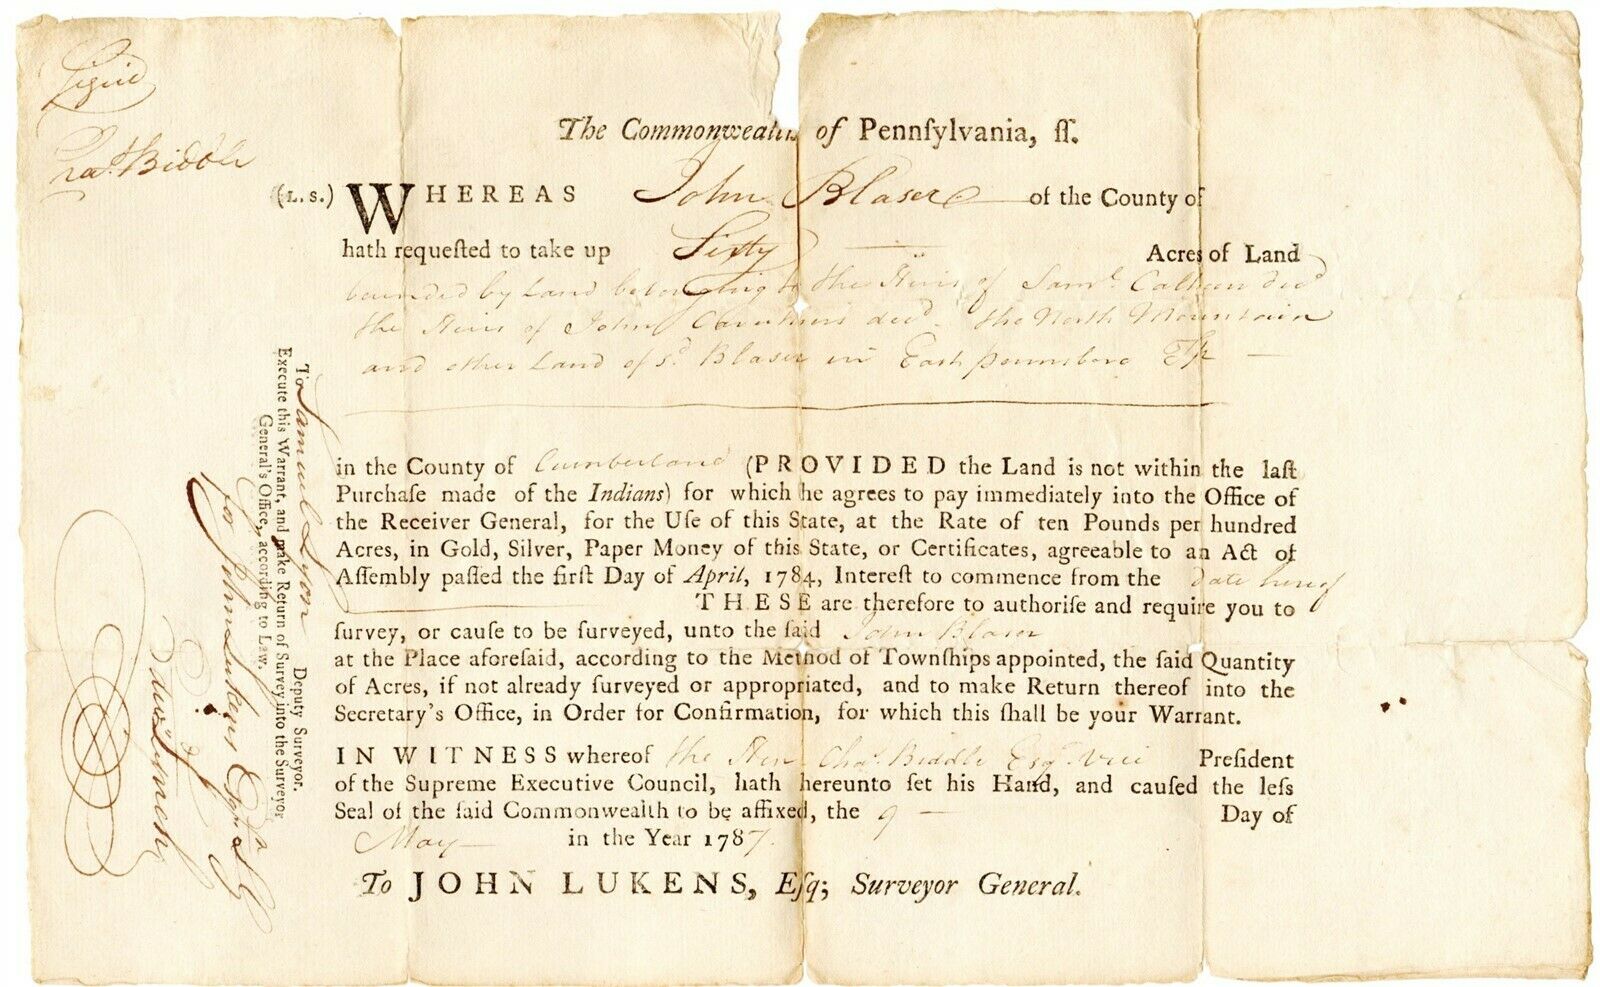 Signed
Chaˢ Biddle
The Commonwealth of Pennſylvania, ſſ.
(L. S.) WHEREAS John Blaser of the County of
hath requeſted to take up Sixty Acres of Land
bounded by Land belonging to the Heirs of Samˡ Calhoun decᵈ
the Heirs of John Caruthers decᵈ the North Mountain
and other Land of sᵈ Blaser in East pennsboro Tp
in the County of Cumberland (PROVIDED the Land is not within the laſt
Purchaſe made of the Indians) for which he agrees to pay immediately into the Office of
the Receiver General, for the Uſe of this State, at the Rate of ten Pounds per hundred
Acres, in Gold, Silver, Paper Money of this State, or Certificates, agreeable to an Act of
Aſſembly paſſed the firſt Day of April, 1784, Intereſt to commence from the date hereof
THESE are therefore to authoriſe and require you to
ſurvey, or cauſe to be ſurveyed, unto the ſaid John Blaser
at the Place aforeſaid, according to the Method of Townſhips appointed, the ſaid Quantity
of Acres, if not already ſurveyed or appropriated, and to make Return thereof into the
Secretary's Office, in Order for Confirmation, for which this ſhall be your Warrant.
IN WITNESS whereof the Hon. Chaˢ Biddle Esqʳ Vice Preſident
of the Supreme Executive Council, hath hereunto ſet his Hand, and cauſed the leſs
Seal of the ſaid Commonwealth to be affixed, the 9 Day of
May in the Year 1787.
To JOHN LUKENS, Eſq; Surveyor General.
To Samuel Lyon Deputy Surveyor.
Execute this Warrant, and make Return of Survey into the Surveyor
General's Office, according to Law.
for John Lukens Esqʳ S G
Edwᵈ Lynch